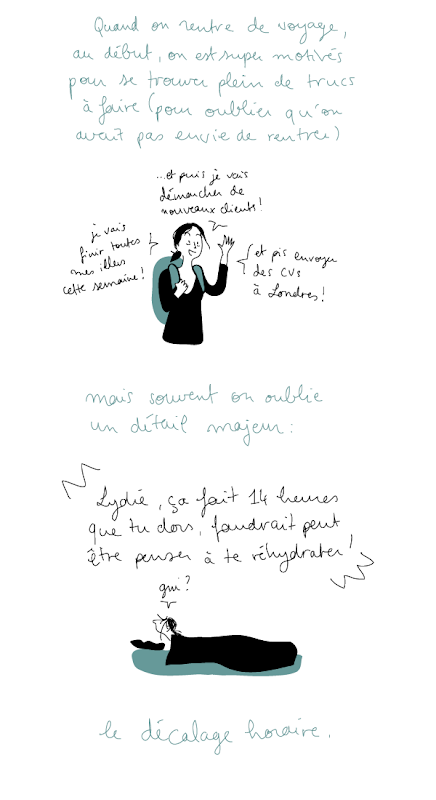 Quand on rentre de voyage,
au début, on est super motivés
pour se trouver plein de trucs
à faire (pour oublier qu'on
avait pas envie de rentrer)
...et puis je vais
démarcher de
nouveaux clients !
je vais
finir toutes
mes illus
cette semaine !
et pis envoyer
des CVs
à Londres !
mais souvent on oublie
un détail majeur :
Lydie, ça fait 14 heures
que tu dors, faudrait peut
être penser à te réhydrater !
qui ?
le décalage horaire.